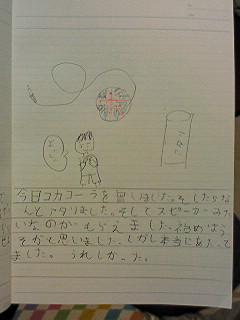 アタリ
今日コカコーラを買いました。そしたらな
んとアタりました。そしてスピーカーみた
いなのがもらえました。初めはう
そかと思いました。しかし本当にあたって
ました。うれしかった。